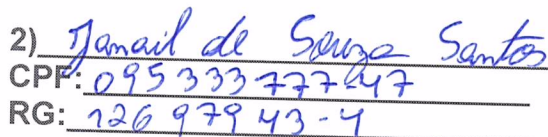 2) Janail de Souza Santos
CPF: 095 333 777-47
RG: 126 979 43-4